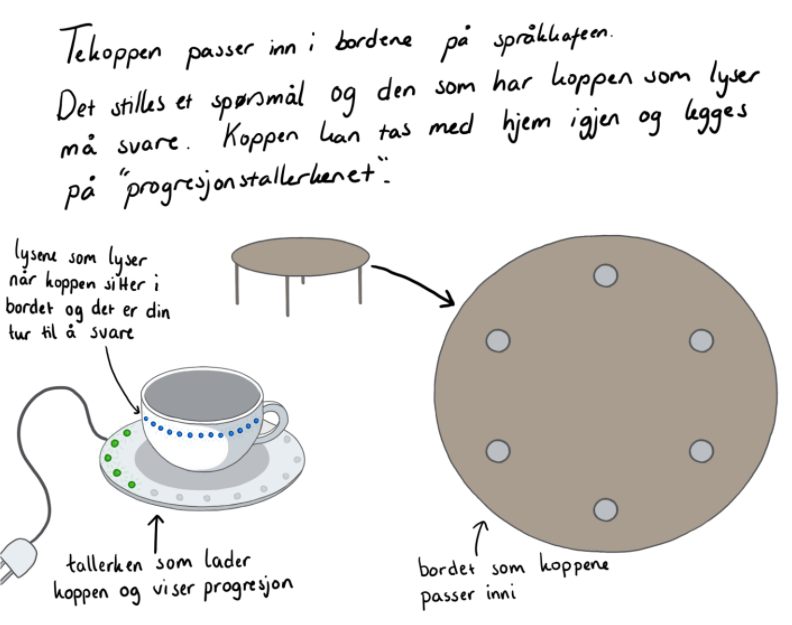 Tekoppen passer inn i bordene på språkkafeen.
Det stilles et spørsmål og den som har koppen som lyser
må svare. Koppen kan tas med hjem igjen og legges
på "progresjonstallerkenet".
lysene som lyser
når koppen sitter i
bordet og det er din
tur til å svare
tallerken som lader
koppen og viser progresjon
bordet som koppene
passer inni